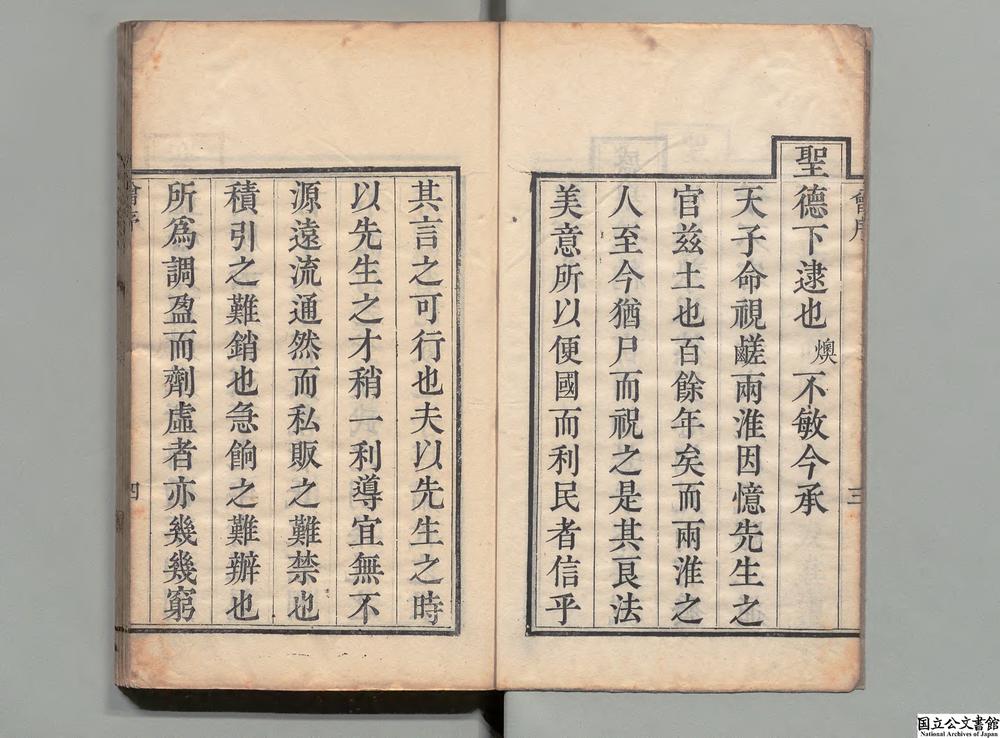 聖德下逮也燠不敏今承
天子命視鹺兩淮因憶先生之
官兹土也百餘年矣而兩淮之
人至今猶尸而祝之是其良法
美意所以便國而利民者信乎
其言之可行也夫以先生之時
以先生之才稍一利導宜無不
源遠流通然而私販之難禁也
積引之難銷也急餉之難辦也
所爲調盈而劑虛者亦幾幾窮
三
四
国立公文書館
National Archives of Japan